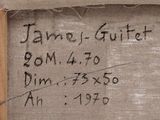 James-Guitet
20M.4.70
Dim.: 73x50
An : 1970